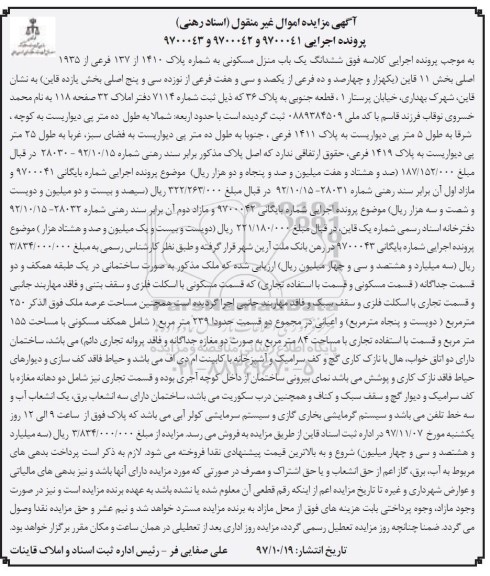 آگهی مزایده اموال غیر منقول (اسناد رهنی)
پرونده اجرایی ۹۷۰۰۰۴۱ و ۹۷۰۰۰۴۲ و ۹۷۰۰۰۴۳
به موجب پرونده اجرایی کلاسه فوق ششدانگ یک باب منزل مسکونی به شماره پلاک ۱۴۱۰ از ۱۳۷ فرعی از ۱۹۳۵
اصلی بخش ۱۱ قاین (یکهزار و چهارصد و ده فرعی از یکصد و سی و هفت فرعی از نوزده سی و پنج اصلی بخش یازده قاین) به نشان
قاین، شهرک بهداری، خیابان پرستار ۱ ، قطعه جنوبی به پلاک ۳۶ که ذیل ثبت شماره ۷۱۱۴ دفتر املاک ۳۲ صفحه ۱۱۸ به نام محمد
خسروی نوقاب فرزند قاسم با کد ملی ۰۸۸۹۳۸۴۵۰۹ ثبت گردیده است با حدود اربعه: شمالا به طول ده متر پی دیواریست به کوچه ،
شرقا به طول ۵ متر پی دیواریست به پلاک ۱۴۱۱ فرعی ، جنوبا به طول ده متر پی دیواریست به فضای سبز، غربا به طول ۲۵ متر
پی دیواریست به پلاک ۱۴۱۹ فرعی، حقوق ارتفاقی ندارد که اصل پلاک مذکور برابر سند رهنی شماره ۹۲/۱۰/۱۵ - ۲۸۰۳۰ در قبال
مبلغ ۱۸۷/۱۵۲/۰۰۰ (صد و هشتاد و هفت میلیون و صد و پنجاه و دو هزار ریال) موضوع پرونده اجرایی شماره بایگانی ۹۷۰۰۰۴۱ و
مازاد اول آن برابر سند رهنی شماره ۲۸۰۳۱- ۹۲/۱۰/۱۵ در قبال مبلغ ۳۲۲/۲۶۳/۰۰۰ ریال (سیصد و بیست و دو میلیون و دویست
و شصت و سه هزار ریال) موضوع پرونده اجرایی شماره بایگانی ۹۷۰۰۰۴۲ و مازاد دوم آن برابر سند رهنی شماره ۲۸۰۳۲- ۹۲/۱۰/۱۵
دفترخانه اسناد رسمی شماره یک قاین، در قبال مبلغ ۲۲۱/۱۸۰/۰۰۰ ریال (دویست و بیست و یک میلیون و صد و هشتاد هزار ) موضوع
پرونده اجرایی شماره بایگانی ۹۷۰۰۰۴۳ در رهن بانک ملت آرین شهر قرار گرفته و طبق نظر کارشناس رسمی به مبلغ ۳/۸۳۴/۰۰۰/۰۰۰
ریال (سه میلیارد و هشتصد و سی و چهار میلیون ریال) ارزیابی شده که ملک مذکور به صورت ساختمانی در یک طبقه همکف و دو
قسمت جداگانه ( قسمت مسکونی و قسمت با استفاده تجاری) که قسمت مسکونی با اسکلت فلزی و سقف بتنی و فاقد مهاربند جانبی
و قسمت تجاری با اسکلت فلزی و سقف سبک و فاقد مهاربند جانبی اجرا گردیده است همچنین مساحت عرصه ملک فوق الذکر ۲۵۰
مترمربع ( دویست و پنجاه مترمربع) و اعیانی در مجموع دو قسمت حدودا ۲۳۹ متر مربع ( شامل همکف مسکونی با مساحت ۱۵۵
متر مربع و قسمت با استفاده تجاری با مساحت ۸۴ متر مربع به صورت دو مغازه جداگانه و فاقد پروانه تجاری دائم) می باشد، ساختمان
دارای دو اتاق خواب، هال با نازک کاری گچ و کف سرامیک و آشپزخانه با کابینت ام دی اف می باشد و حیاط فاقد کف سازی و دیوارهای
حیاط فاقد نازک کاری و پوشش می باشد نمای بیرونی ساختمان از داخل کوچه آجری بوده و قسمت تجاری نیز شامل دو دهانه مغازه با
کف سرامیک و دیوار گچ و سقف سبک و کناف و همچنین درب سکوریت می باشد، ساختمان دارای سه انشعاب برق، یک انشعاب آب و
سه خط تلفن می باشد و سیستم گرمایشی بخاری گازی و سیستم سرمایشی کولر آبی می باشد که پلاک فوق از ساعت ۹ الی ۱۲ روز
یکشنبه مورخ ۹۷/۱۱/۰۷ در اداره ثبت اسناد قاین از طریق مزایده به فروش می رسد. مزایده از مبلغ ۳/۸۳۴/۰۰۰/۰۰۰ ریال (سه میلیارد
و هشتصد و سی و چهار میلیون) شروع و به بالاترین قیمت پیشنهادی نقدا فروخته می شود. لازم به ذکر است پرداخت بدهی های
مربوط به آب، برق، گاز اعم از حق انشعاب و یا حق اشتراک و مصرف در صورتی که مورد مزایده دارای آنها باشد و نیز بدهی های مالیاتی
و عوارض شهرداری و غیره تا تاریخ مزایده اعم از اینکه رقم قطعی آن معلوم شده یا نشده باشد به عهده برنده مزایده است و نیز در صورت
وجود مازاد، وجوه پرداختی بابت هزینه های فوق از محل مازاد به برنده مزایده مسترد خواهد شد و نیم عشر و حق مزایده نقدا وصول
می گردد. ضمنا چنانچه روز مزایده تعطیل رسمی گردد، مزایده روز اداری بعد از تعطیلی در همان ساعت و مکان مقرر برگزار خواهد بود.
تاریخ انتشار: ۹۷/۱۰/۱۹ علی صفایی فر - رئیس اداره ثبت اسناد و املاک قاینات